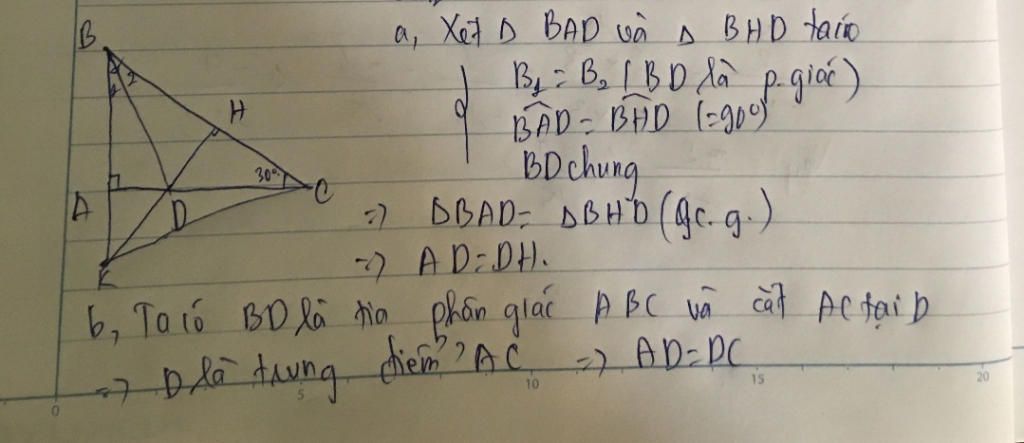 a, Xét Δ BAD và Δ BHD ta có
B₁ = B₂ (BD là p.giác)
BAD = BHD (=90°)
BD chung
=> ΔBAD = ΔBHD (gc.g.)
=> AD = DH.
b, Ta có BD là tia phân giác ABC và cắt AC tại D
=> D là trung điểm AC => AD = DC
B
2
H
30°
A
D
C
K
0 5 10 15 20